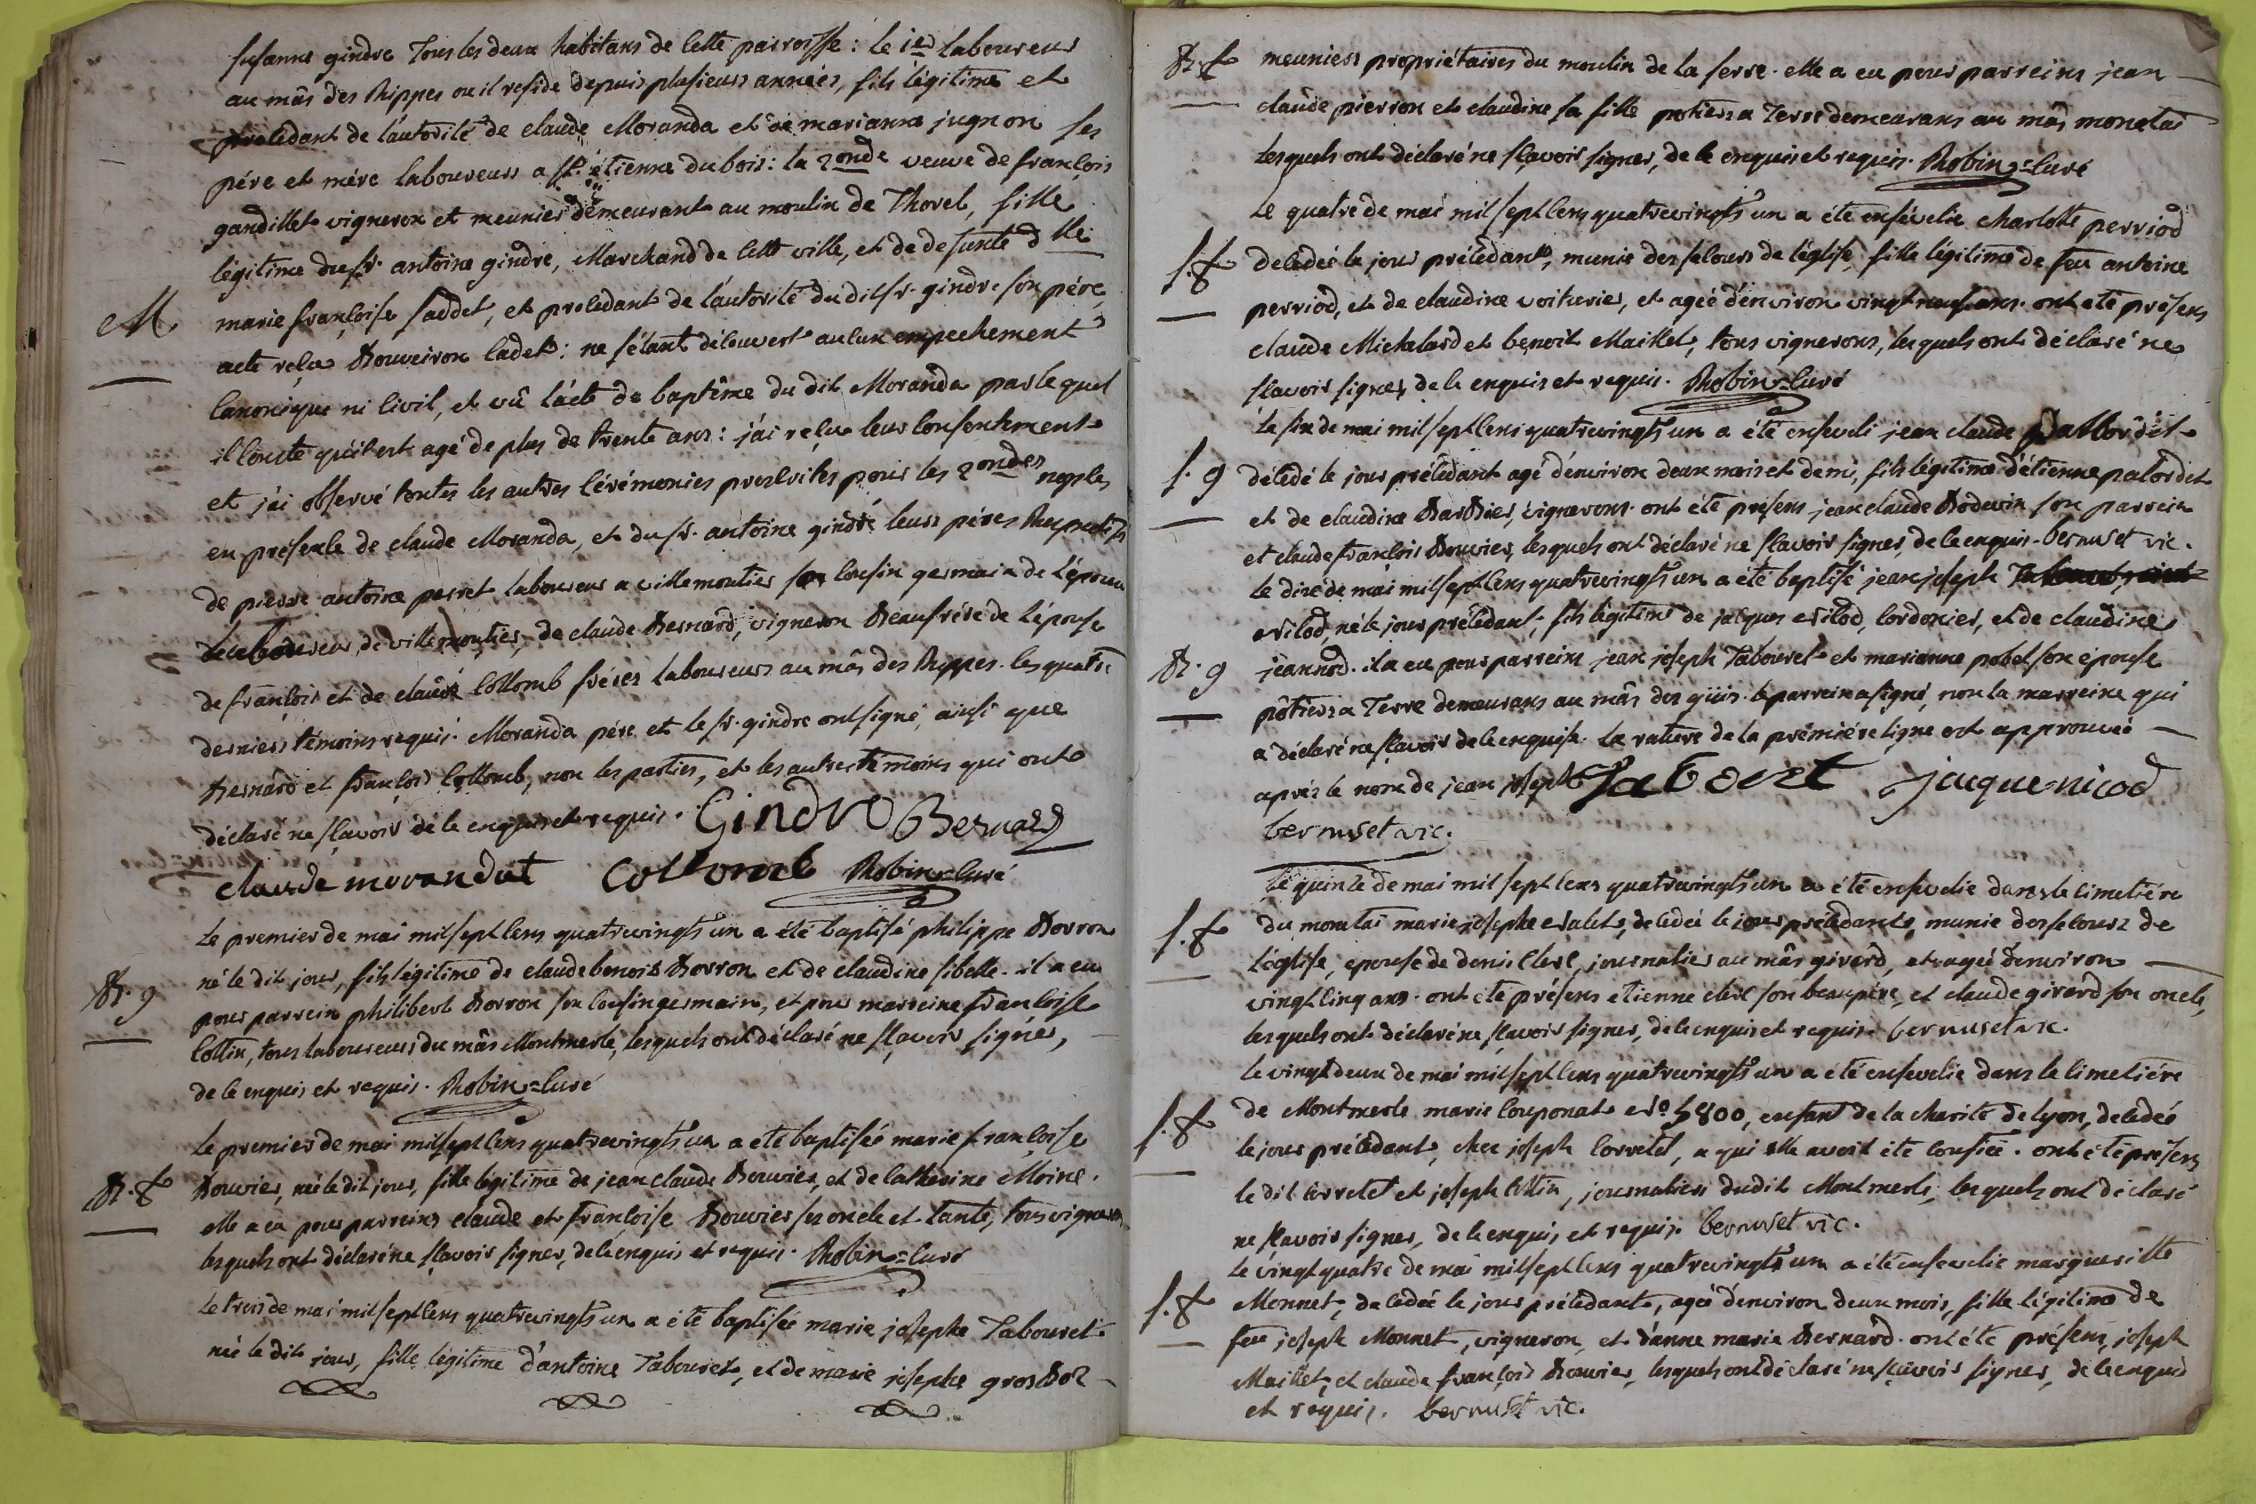 susanne gindre Tous les deux habitans de cette parroisse : le 1er Laboureur
au mâs des Rippes ou il reside depuis plusieurs années, fils légitime et
procédant de l'autorité de claude Moranda et de marianne jugnon ses
pére et mére laboureurs a st. étienne du bois : la 2onde veuve de françois
gandillet vigneron et meunier demeurant au moulin de Thorel, fille
légitime du sr. antoine gindre, Marchand de cette ville, et de defunte dlle
M. marie françoise saddet, et procedant de l'autorité du dit sr. gindre son pére,
acte reçu Bouveiron cadet : ne s'étant découvert aucun empechement
canonique ni civil, et vû l'acte de baptême du dit Moranda par le quel
il conste qu'il est agé de plus de trente ans : j'ai reçu leur consentement
et j'ai observé toutes les autres cérémonies prescrites pour les 2ondes nopces
en présence de claude Moranda, et du sr. antoine gindre leurs péres Respectifs
de pierre antoine perret laboureur a villemoutier cousin germain de l'époux
laboureur de villemoutier, de claude Bernard, vigneron Beaufrére de l'épouse
de françois et de claude Collomb fréres laboureurs au mâs des Rippes. les quatre
derniers témoins requis. Moranda pére et le sr. gindre ont signé, ainsi que
Bernard et françois Collomb, non les parties, et les autres témoins qui ont
déclaré ne sçavoir de ce enquis et requis. Gindre Bernard
claude morandat Collomb Robin=Curé
Le premier de mai mil sept cens quatrevingts un a été baptisé philippe Borron
B. g né le dit jour, fils légitime de claude benoit Borron et de claudine sibelle. il a eu
pour parrein philibert Borron son cousin germain, et pour marreine françoise
Cottin, tous laboureurs du mâs Montmerle, lesquels ont déclaré ne sçavoir signer,
de ce enquis et requis. Robin=Curé
Le premier de mai mil sept cens quatrevingts un a été baptisée marie françoise
B. f Bouvier, née le dit jour, fille légitime de jean claude Bouvier, et de catherine Moine.
elle a eu pour parreins claude et françoise Bouvier ses oncle et tante, tous vignerons,
lesquels ont déclaré ne sçavoir signer, de ce enquis et requis. Robin=Curé
Le trois de mai mil sept cens quatrevingts un a été baptisée marie josephe Tabouret
née le dit jour, fille légitime d'antoine Tabouret, et de marie josephe grosboz
B. f meuniers propriétaires du moulin de la serre. elle a eu pour parreins jean
claude pierron et claudine sa fille potiers a Terre demeurans au mâs monetai
lesquels ont déclaré ne sçavoir signer, de ce enquis et requis. Robin=Curé
Le quatre de mai mil sept cens quatrevingts un a été ensévelie charlotte perriod
s. f decedée le jour précédant, munie des secours de l'église, fille légitime de feu antoine
perriod, et de claudine voiturier, et agée d'environ vingt neuf ans. ont été présens
claude Michalard et benoit Maillet, tous vignerons, lesquels ont déclaré ne
sçavoir signer, de ce enquis et requis. Robin=Curé
Le six de mai mil sept cens quatrevingts un a été enseveli jean claude palbordet
s. g décédé le jour précédant agé d'environ deux mois et demi, fils légitime d'étienne palordet
et de claudine Barbier, vignerons. ont été présens jean claude Bodevin son parrein
et claude françois Bouvier, lesquels ont déclaré ne sçavoir signer, de ce enquis. bernuset vic.
Le dixe de mai mil sept cens quatrevingts un a été baptisé jean joseph
nicod, né le jour précédant, fils légitime de jacques nicod, cordonier, et de claudine
B. g jeannod. il a eu pour parreins jean joseph Tabouret et marianne pobel son épouse
pôtiers a Terre demeurans au mâs des guis. le parrein a signé, non la marreine qui
a déclaré ne sçavoir de ce enquise. La rature de la prémiére ligne est approuvée
aprés le nom de jean joseph Tabouret jacque nicod
bernuset vic.
Le quinze de mai mil sept cens quatrevingts un a été ensevelie dans le cimetiére
s. f du monetai marie josephe valet, decedée le jour précédant, munie des secours de
l'église, epouse de denis clerc, journalier au mâs girerd, et agée d'environ
vingt cinq ans. ont été présens etienne clerc son beaupére, et claude girerd son oncle,
lesquels ont déclaré ne sçavoir signer, de ce enquis et requis. bernuset vic.
Le vingt deux de mai mil sept cens quatrevingts un a été ensevelie dans le cimetiére
s. f de Montmerle marie Couponat No. 5800, enfant de la charité de lyon, decedée
le jour précédant, chez joseph Corretel, a qui elle avoit été confiée. ont été présens
le dit Corretel et joseph Cottin, journaliers du dit Montmerle, lesquels ont déclaré
ne sçavoir signer, de ce enquis et requis. bernuset vic.
Le vingt quatre de mai mil sept cens quatrevingts un a été ensevelie marguerite
s. f Monnet, decedée le jour précédant, agée d'environ deux mois, fille légitime de
feu joseph Monnet, vigneron, et d'anne marie Bernard. ont été présens, joseph
Maillet, et claude françois Bouvier, lesquels ont déclaré ne sçavoir signer, de ce enquis
et requis. bernuset vic.